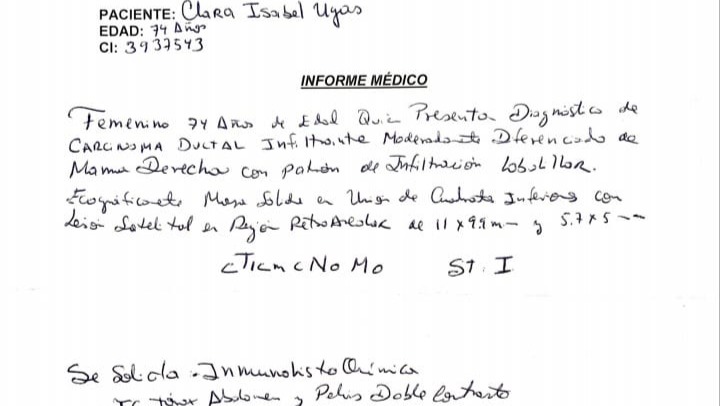 PACIENTE: Clara Isabel Ugas
EDAD: 74 Años
CI: 3937543
INFORME MÉDICO
Femenino 74 Años de Edad Quien Presenta Diagnostico de
CARCINOMA DUCTAL Infiltrante Moderadamente Diferenciado de
Mama Derecha con patrón de Infiltración lobulillar.
Ecograficamente Masa Solida en Union de Cuadrantes Inferiores con
lesion Satelital en Región RetroAreolar de 11 x 9.9 mm y 5.7 x 5 mm
cT1cm cN0 M0 St. I
Se Solicita . Inmunohisto Química
TC tórax Abdomen y Pelvis Doble Contraste